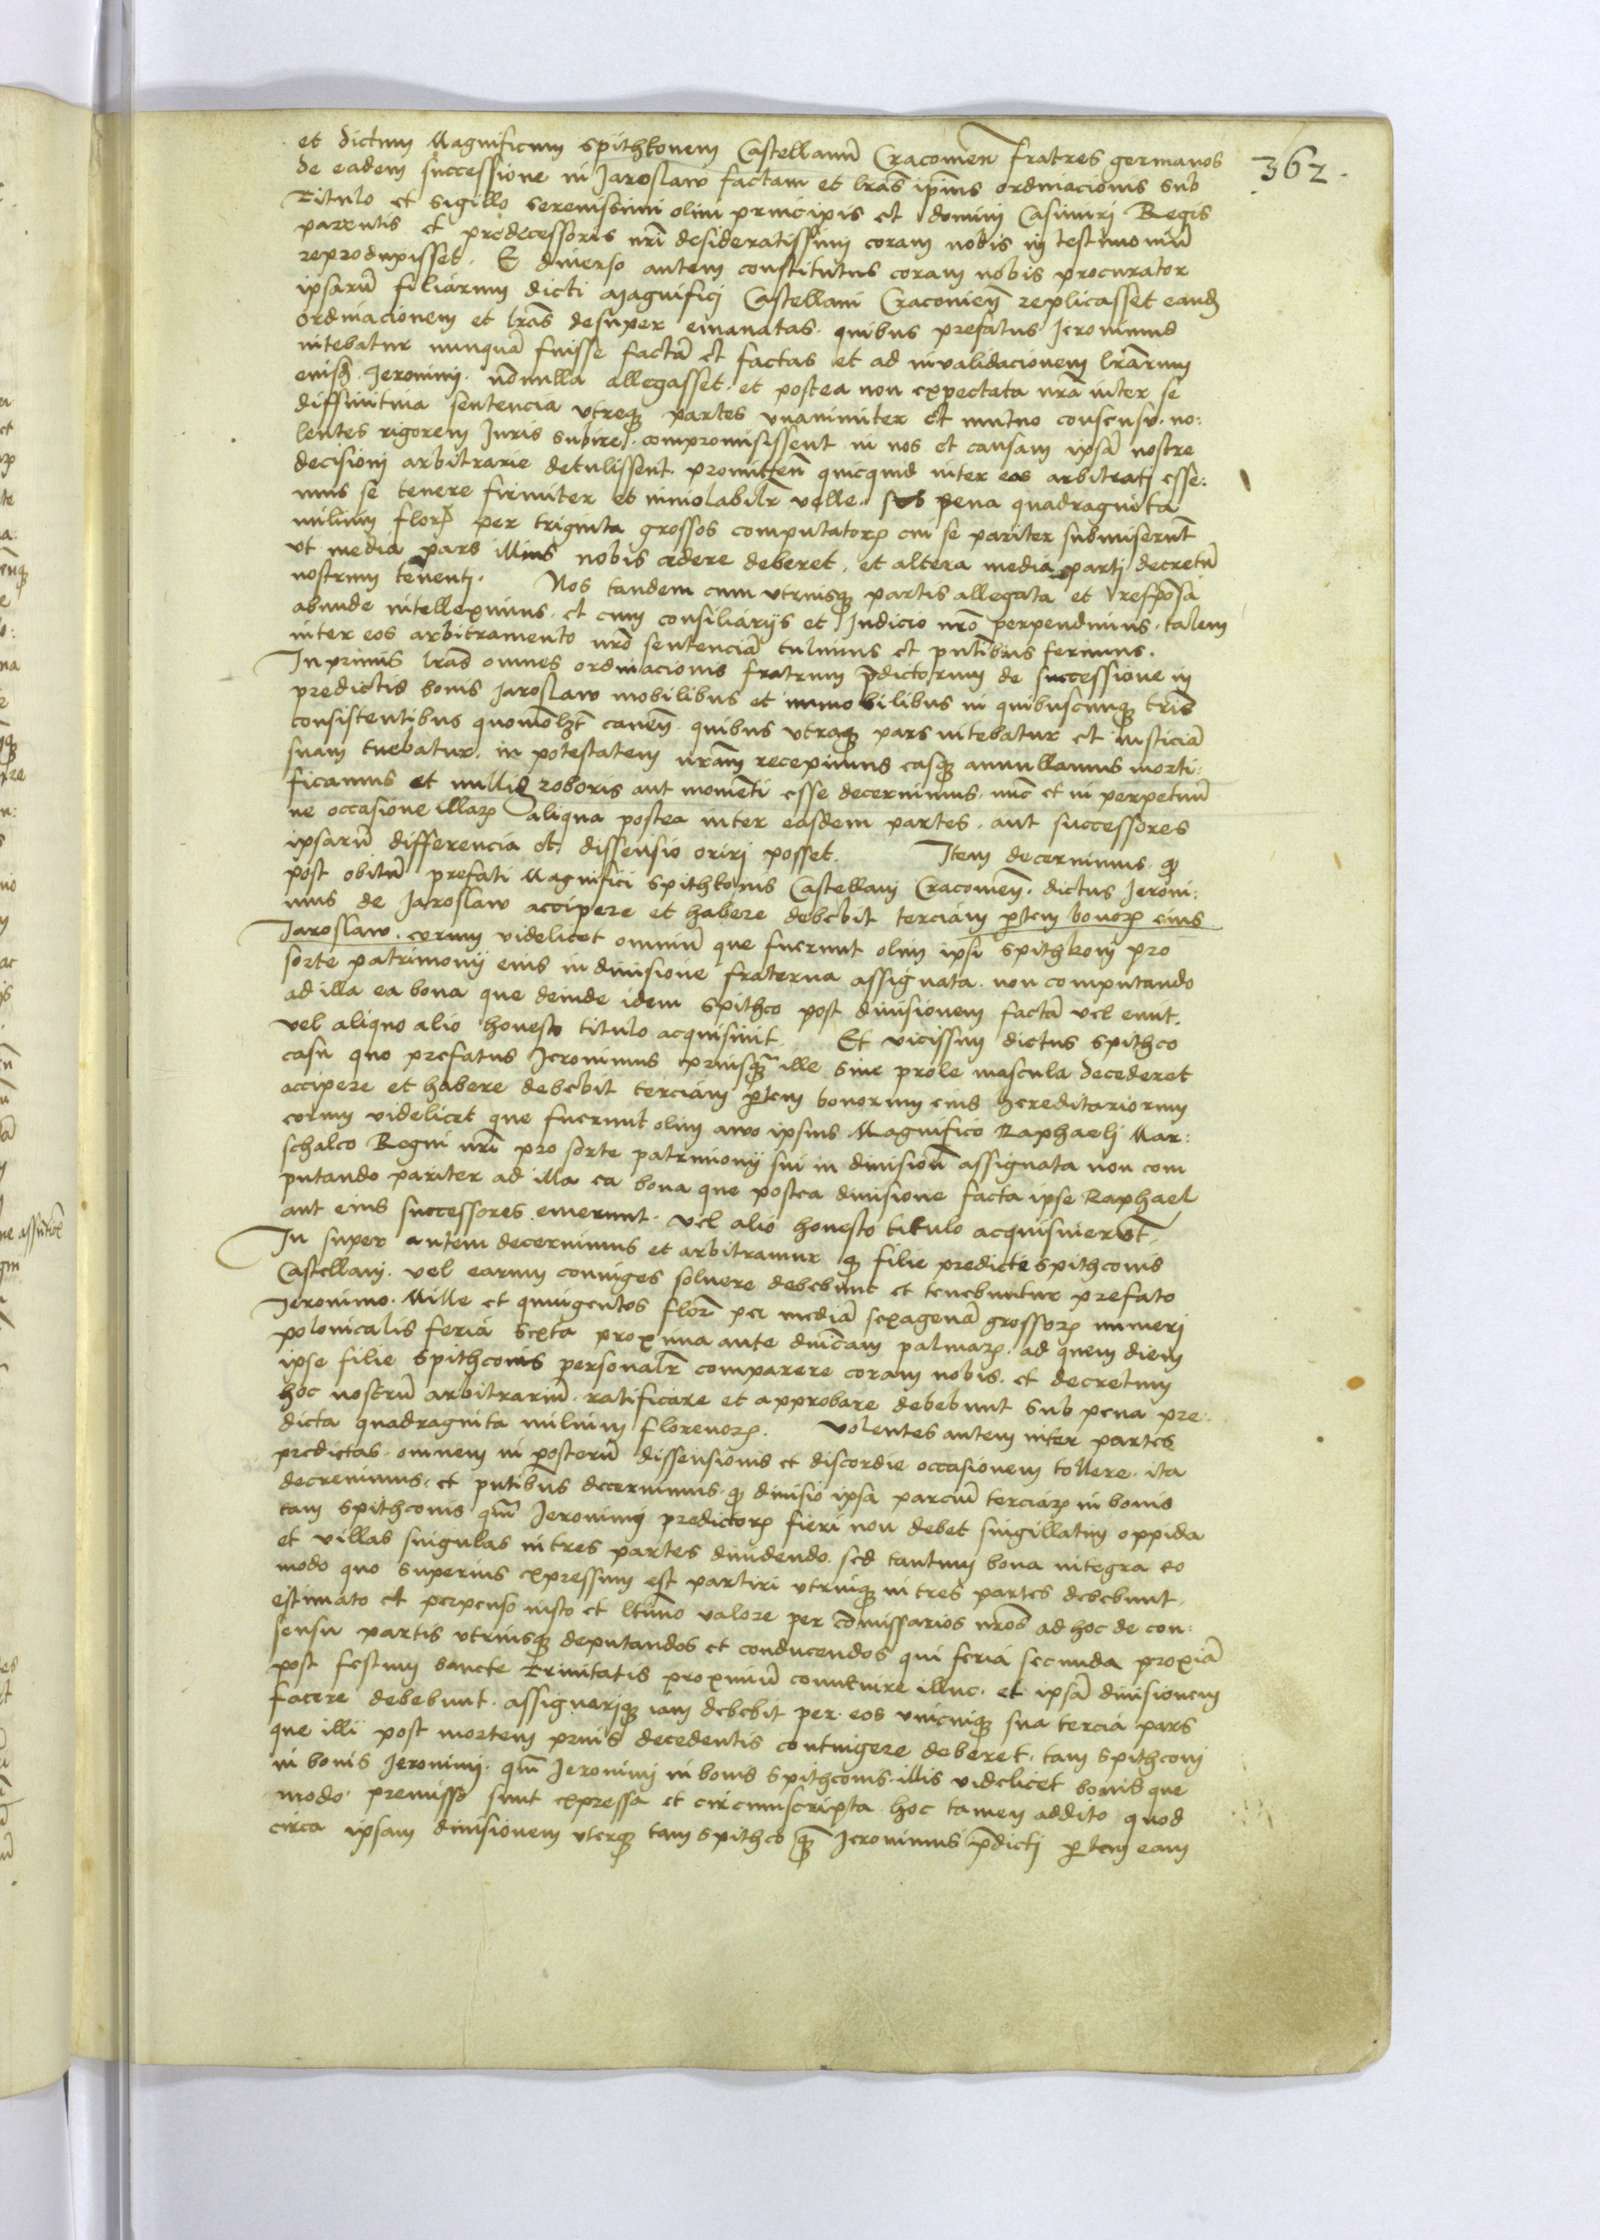 362.
et dictum Magnificum Spithkonem Castellanū Cracovien̄ fratres germanos
de eadem successione in Jaroslaw factam et lrās ipīus ordinacionis sub
Titulo et sigillo serenissimi olim principis et domini Casimirj Regis
parentis et predecessoris nrī desideratissimj coram nobis in testimoniū
reproduxisset. E diverso autem constitutus coram nobis procurator
ipsarū filiarum dicti Magnificj Castellani Cracovien̄ replicasset eand
ordinacionem et lrās desuper emanatas. quibus prefatus Jeronimus
nitebatur nunquā fuisse factā et factas et ad invalidacionem lrārum
eiusd. Jeronimj. nōnulla allegasset. et postea non expectata nrā inter se
diffinitiva sentencia utreqz partes unanimiter et mutuo consensu. no:
lentes rigorem Juris subire. compromisissent in nos et causam ipsā nostre
decisionj arbitrarie detulissent. promitten̄ quicquid inter eos arbitratj esse:
mus se tenere firmiter et inviolabilr̄ velle. sub pena quadraginta
milium flor per triginta grossos computatorꝝ cui se pariter submiserūt
ut media pars illius nobis cedere deberet. et altera media partj decretū
nostrum tenentj. Nos tandem cum utriusqz partis allegata et responsa
abunde intelleximus. et cum consiliarijs et Judicio nrō perpendimus. talem
inter eos arbitramento nrō sentenciā tulimus et pn̄tibus ferimus.
Inprimis lrās omnes ordinacionis fratrum p̄dictorum de successione in
predictis bonis Jaroslaw mobilibus et immobilibus in quibuscunqz tris
consistentibus quomōlzt caven̄. quibus utraqz pars nitebatur et iusticiā
suam tuebatur. in potestatem nrām recepimus easqz annullamus morti:
ficamus et nullis roboris aut momenti esse decernimus. nūc et in perpetuū
ne occasione illarꝝ aliqua postea inter easdem partes. aut successores
ipsarū differencia et dissensio orirj posset. Item decernimus. qꝫ
post obitū prefati Magnifici Spithkonis Castellanj Cracovien̄. dictus Jeroni:
mus de Jaroslaw accipere et habere debebit terciam ꝑtem bonorꝝ eius
Jaroslaw. eorum videlicet omniū que fuerunt olim ipsi Spithkonj pro
sorte patrimonij eius in divisione fraterna assignata. non computando
ad illa ea bona que deinde idem Spithco post divisionem factā vel emit.
vel aliquo alio honesto titulo acquisivit. Et vicissim dictus Spithco
casu quo prefatus Jeronimus priusqꝫ ille sine prole mascula decederet
accipere et habere debebit terciam ꝑtem bonorum eius hereditariorum
eorum videlicet que fuerunt olim avo ipsius Magnifico Raphaelj Mar:
schalco Regni nrī pro sorte patrimonij sui in divisiōn assignata non com
putando pariter ad illa ea bona que postea divisione facta ipse Raphael
aut eius successores. emerunt. vel alio honesto titulo acquisiverūt.
In super autem decernimus et arbitramur qꝫ filie predicte Spithconis
Castellanj. vel earum coniuges solvere debebunt et tenebuntur prefato
Jeronimo. Mille et quingentos flor̄ per mediā sexagenā grossorꝝ numeri
polonicalis feria sexta proxima ante dn̄icam palmarꝝ. ad quem diem
ipse filie Spithconis personalr̄ comparere coram nobis. et decretum
hoc nostrū arbitrariū. ratificare et approbare debebunt sub pena pre:
dicta quadraginta milium florenorꝝ. volentes autem inter partes
predictas. omnem in posterū dissensionis et discordie occasionem tollere. ita
decrevimus. et pn̄tibus decernimus. qꝫ divisio ipsa parciū terciarꝝ in bonis
tam Spithconis qm̄ Jeronimj predictorꝝ fieri non debet singillatim oppida
et villas singulas in tres partes dividendo. sed tantum bona integra eo
modo quo superius expressum est partiri utrinqz in tres partes debebunt.
estimato et perpenso iusto et ltimo valore per cōmissarios nrōs ad hoc de con:
sensu partis utriusqz deputandos et conducendos qui feria secunda proxīa
post festum sancte Trinitatis proximū convenire illuc. et ipsā divisionem
facere debebunt. assignarique iam debebit per. eos unicuiqz sua tercia pars
que illi post mortem prius decedentis contingere deberet. tam Spithconj
in bonis Jeronimj. qm̄ Jeronimj in bonis Spithconis. illis videlicet bonis que
modo premisso sunt expressa et circumscripta. hoc tamen addito quod
circa ipsam divisionem uterqz tam Spithco qꝫ Jeronimus p̄dictj ꝑtem eam